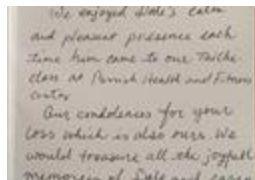 We enjoyed Dale's calm
and pleasant presence each
time him came to our Taiche
class at Parrish Health and Fitness
center
Our condolences for your
loss which is also ours. We
would treasure all the joyfull
memories of Dale and